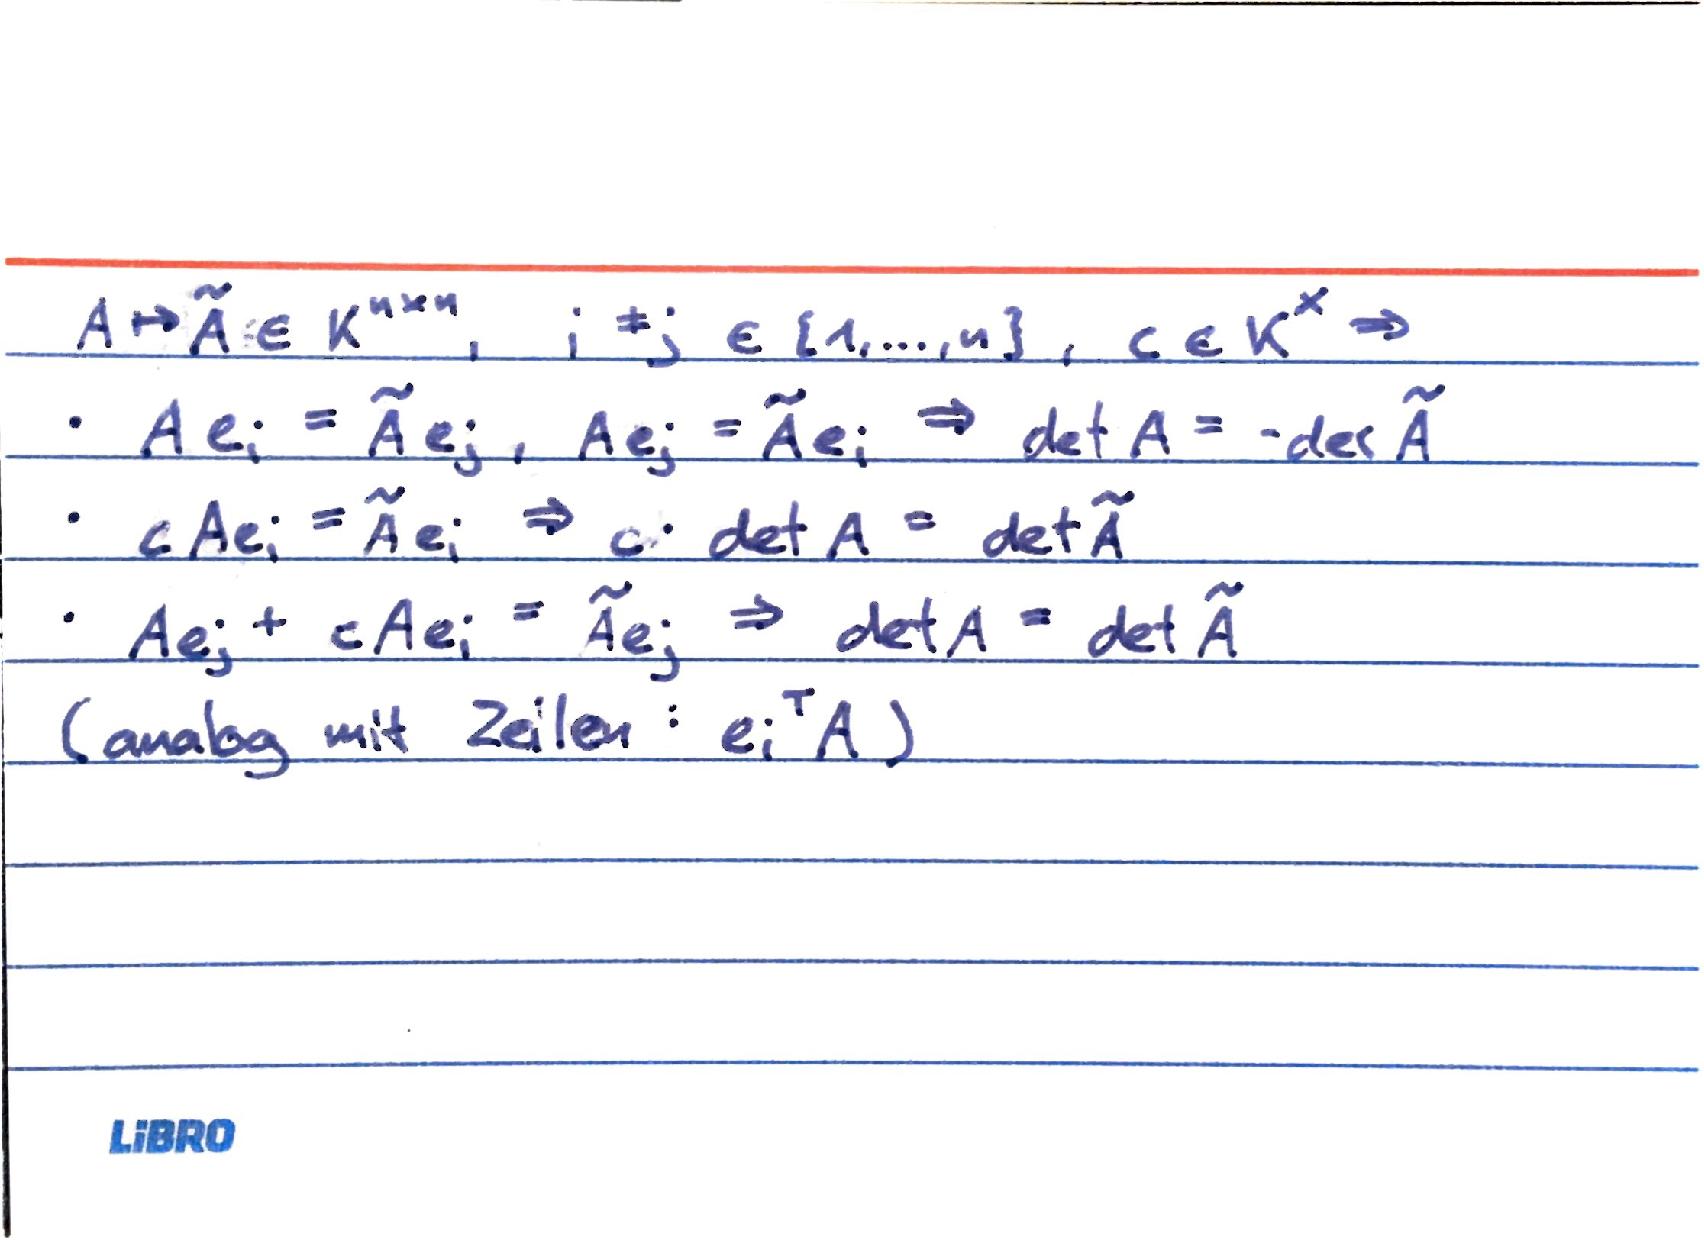 A ↦ Ã ∈ K^{n×n}, i ≠ j ∈ {1,...,n}, c ∈ K^× ⇒
· A e_i = Ã e_j, A e_j = Ã e_i ⇒ det A = -det Ã
· c A e_i = Ã e_i ⇒ c · det A = det Ã
· A e_j + c A e_i = Ã e_j ⇒ det A = det Ã
(analog mit Zeilen : e_i^T A)
LiBRO